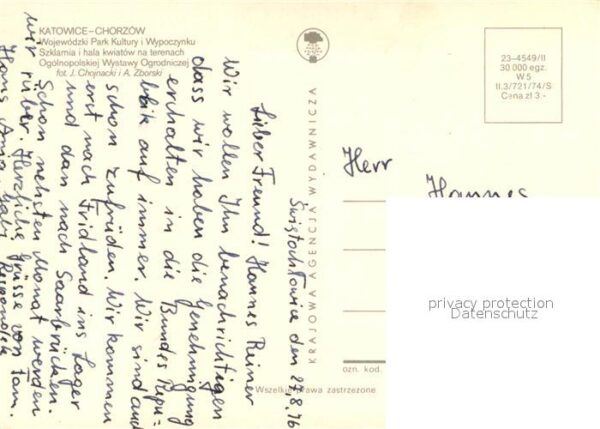 KATOWICE–CHORZÓW
Wojewódzki Park Kultury i Wypoczynku
Szklarnia i hala kwiatów na terenach
Ogólnopolskiej Wystawy Ogrodniczej
fot. J. Chojnacki i A. Zborski
23-4549/II
30.000 egz.
W 5
II.3/721/74/S
Cena zł 3.-
KRAJOWA AGENCJA WYDAWNICZA
Świętochłowice den 27.8.76
Lieber Freund! Hannes Reiner
Wir wollen Ihn benachrichtigen
dass wir haben die Genehmigung
erchalten in die Bundes Repu=
blik auf immer. Wir sind auch
schon zufrüden. Wir kommen
erst nach Fridland ins Lager
und dan nach Saarbrücken.
Schon nehsten Monat werden
wir rüber. Herzliche Grüsse von Fam.
Hans
Herr
Hannes
privacy protection
Datenschutz
ozn. kod.
Wszelkie prawa zastrzeżone